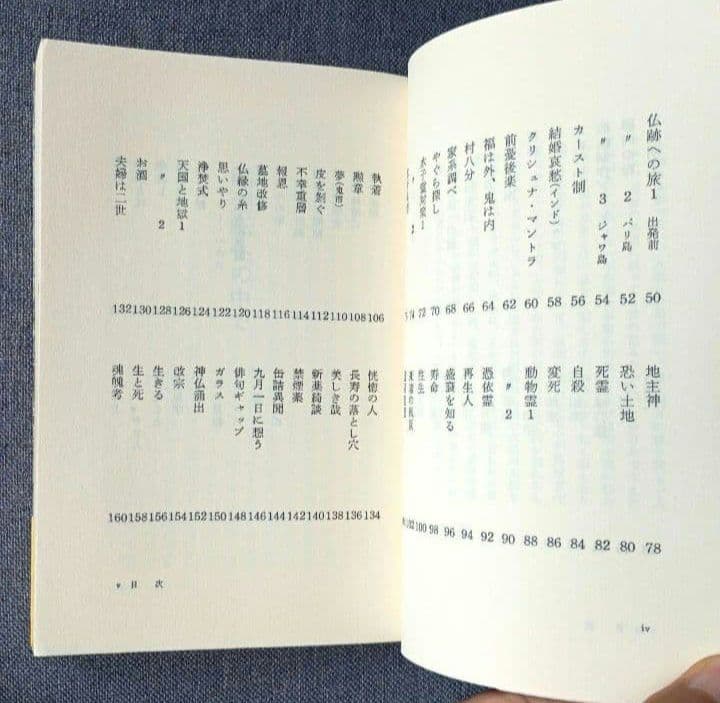 仏跡への旅 1 出発前 50
〃 2 バリ島 52
〃 3 ジャワ島 54
カースト制 56
結婚哀愁(インド) 58
クリシュナ・マントラ 60
前憂後楽 62
福は外、鬼は内 64
村八分 66
家系調べ 68
やぐら探し 70
72
74
地主神 78
恐い土地 80
死霊 82
自殺 84
変死 86
動物霊 1 88
〃 2 90
憑依霊 92
再生人 94
盛衰を知る 96
寿命 98
性生 100
102
iv
執着 106
勲章 108
夢(鬼市) 110
皮を剝ぐ 112
不幸重層 114
報恩 116
墓地改修 118
仏縁の糸 120
思いやり 122
浄焚式 124
天国と地獄 1 126
〃 2 128
お酒 130
夫婦は二世 132
恍惚の人 134
長寿の落とし穴 136
美しき哉 138
新薬綺談 140
禁煙薬 142
缶詰異聞 144
九月一日に想う 146
俳句ギャップ 148
ガラス 150
神仏涌出 152
改宗 154
生きる 156
生と死 158
魂魄考 160
v 目次